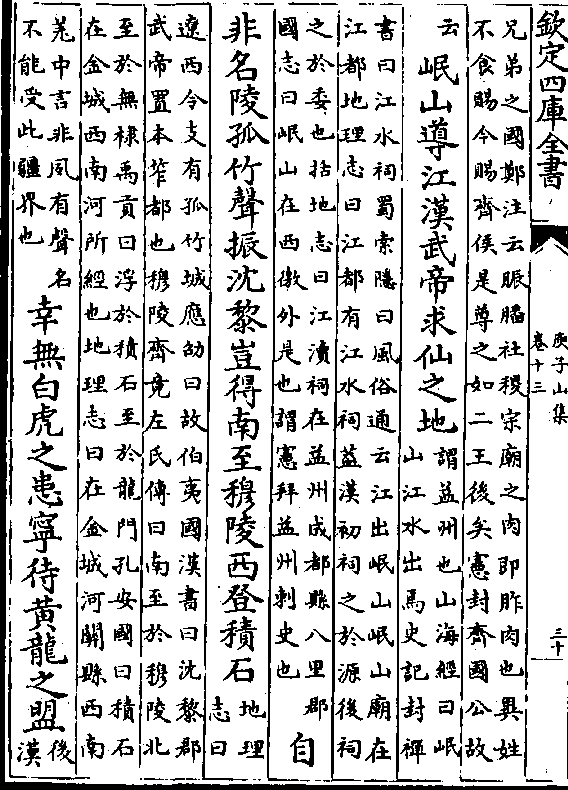 欽定四庫全書
庾子山集
卷十三
三十
兄弟之國鄭注云脤膰社稷宗廟之肉即胙肉也異姓
不食賜今賜齊侯是尊之如二王後矣憲封齊國公故
云
岷山導江漢武帝求仙之地
謂益州也山海經曰岷
山江水出焉史記封禪
書曰江水祠蜀索隱曰風俗通云江出岷山岷山廟在
江都地理志曰江都有江水祠葢漢初祠之於源後祠
之於委也括地志曰江瀆祠在益州成都縣八里郡
國志曰岷山在西徼外是也謂憲拜益州刺史也
自
非名陵孤竹聲振沈黎豈得南至穆陵西登積石
地理
志曰
遼西令支有孤竹城應劭曰故伯夷國漢書曰沈黎郡
武帝置本笮都也穆陵齊竟左氏傳曰南至於穆陵北
至於無棣禹貢曰浮於積石至於龍門孔安國曰積石
在金城西南河所經也地理志曰在金城河關縣西南
羌中言非夙有聲名
不能受此疆界也
幸無白虎之患寧待黃龍之盟
後
漢